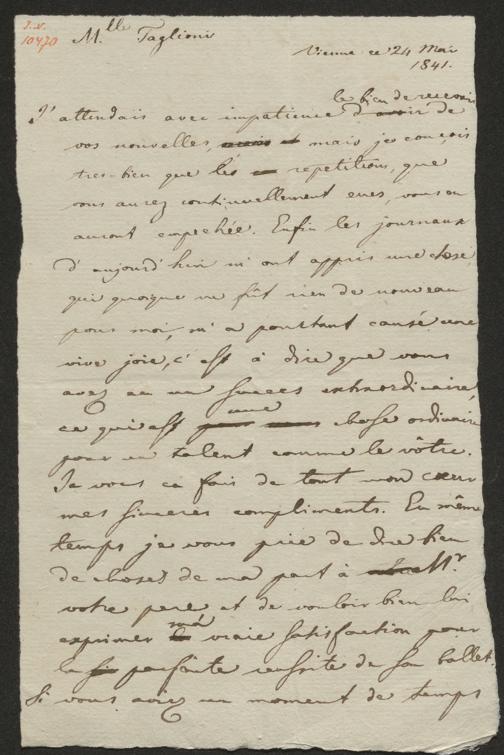 J.N.
10470
M.lle Taglioni
Vienne ce 24 Mai
1841.
le bien de recevoir
J'attendais avec impatience d'avoir de
vos nouvelles, mais je conçois
tres-bien que les repetitions, que
vous aurez continuellement eues, vous en
auront empechée. Enfin les journaux
d'aujourd'hui m'ont appris une chose,
qui quoique ne fût rien de nouveau
pour moi, m'a pourtant causé une
vive joie, c'est à dire que vous
avez eu un succes extraordinaire,
ce qui est une chose ordinaire
pour un talent comme le vôtre.
Je vous en fais de tout mon cœur
mes sinceres compliments. En même
temps je vous prie de dire bien
de choses de ma part à Mr.
votre pere et de vouloir bien lui
exprimer ma vraie satisfaction pour
la parfaite reussite de son ballet.
Si vous aviez un moment de temps